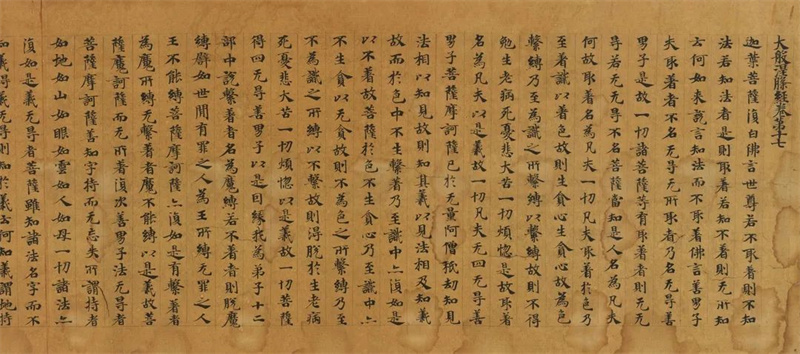 大般涅槃經卷第十七
迦葉菩薩復白佛言世尊若不取著則不知
法若知法者是則取著若知不著則无所知
云何如來說言知法而不取著佛言善男子
夫取著者不名无㝵无所取者乃名无㝵善
男子是故一切諸菩薩等有取著者則无无
㝵若无无㝵不名菩薩當知是人名為凡夫
何故取著名為凡夫一切凡夫取著於色乃
至著識以著色故則生貪心生貪心故為色
繫縛乃至為識之所繫縛以繫縛故則不得
免生老病死憂悲大苦一切煩惱是故取著
名為凡夫以是義故一切凡夫无四无㝵善
男子菩薩摩訶薩已於无量阿僧祇劫知見
法相以知見故則知其義以見法相及知義
故而於色中不生繫著乃至識中亦復如是
以不著故菩薩於色不生貪心乃至識中亦
不生貪以无貪故則不為色之所繫縛乃至
不為識之所縛以不繫故則得脫於生老病
死憂悲大苦一切煩惱以是義故一切菩薩
得四无㝵善男子以是因緣我為弟子十二
部中說繫著者名為魔縛若不著者則脫魔
縛辟如世間有罪之人為王所縛无罪之人
王不能縛菩薩摩訶薩亦復如是有繫著者
為魔所縛无繫著者魔不能縛以是義故菩
薩摩訶薩而无所著復次善男子法无㝵者
菩薩摩訶薩善知字持而无忘失所謂持者
如地如山如眼如雲如人如母一切諸法亦
復如是義无㝵者菩薩雖知諸法名字而不
知義得義无㝵則知於義云何知義謂地持